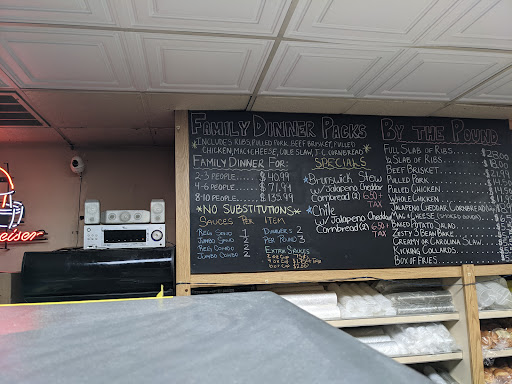 Family Dinner Packs
*Includes Ribs, Pulled Pork, Beef Brisket, Pulled
Chicken, Mac + Cheese, Cole Slaw, + J.C. Cornbread*
Family Dinner For:
2-3 People..... $40.99
4-6 People..... $71.99
8-10 People..... $132.99
*No Substitutions*
Sauces Per Item
Reg Sand 1
Jumbo Sand 2
Reg Combo 2
Jumbo Combo 2
Dinners 2
Per Pound 3
Extra Sauces
Specials
*Brunswick Stew
w/ Jalapeno Cheddar
Cornbread (2) 6.50+
TAX
*Chile
w/ Jalapeno Cheddar
Cornbread (2) 6.50+
TAX
By the Pound
Full Slab of Ribs
1/2 Slab of Ribs
Beef Brisket
Pulled Pork
Pulled Chicken
Whole Chicken
Jalapeno Cheddar Cornbread
Mac & Cheese
Baked Potato Salad
Zesty 3 Bean Bake
Creamy or Carolina Slaw
Kicking Collards
Box of Fries
weiser